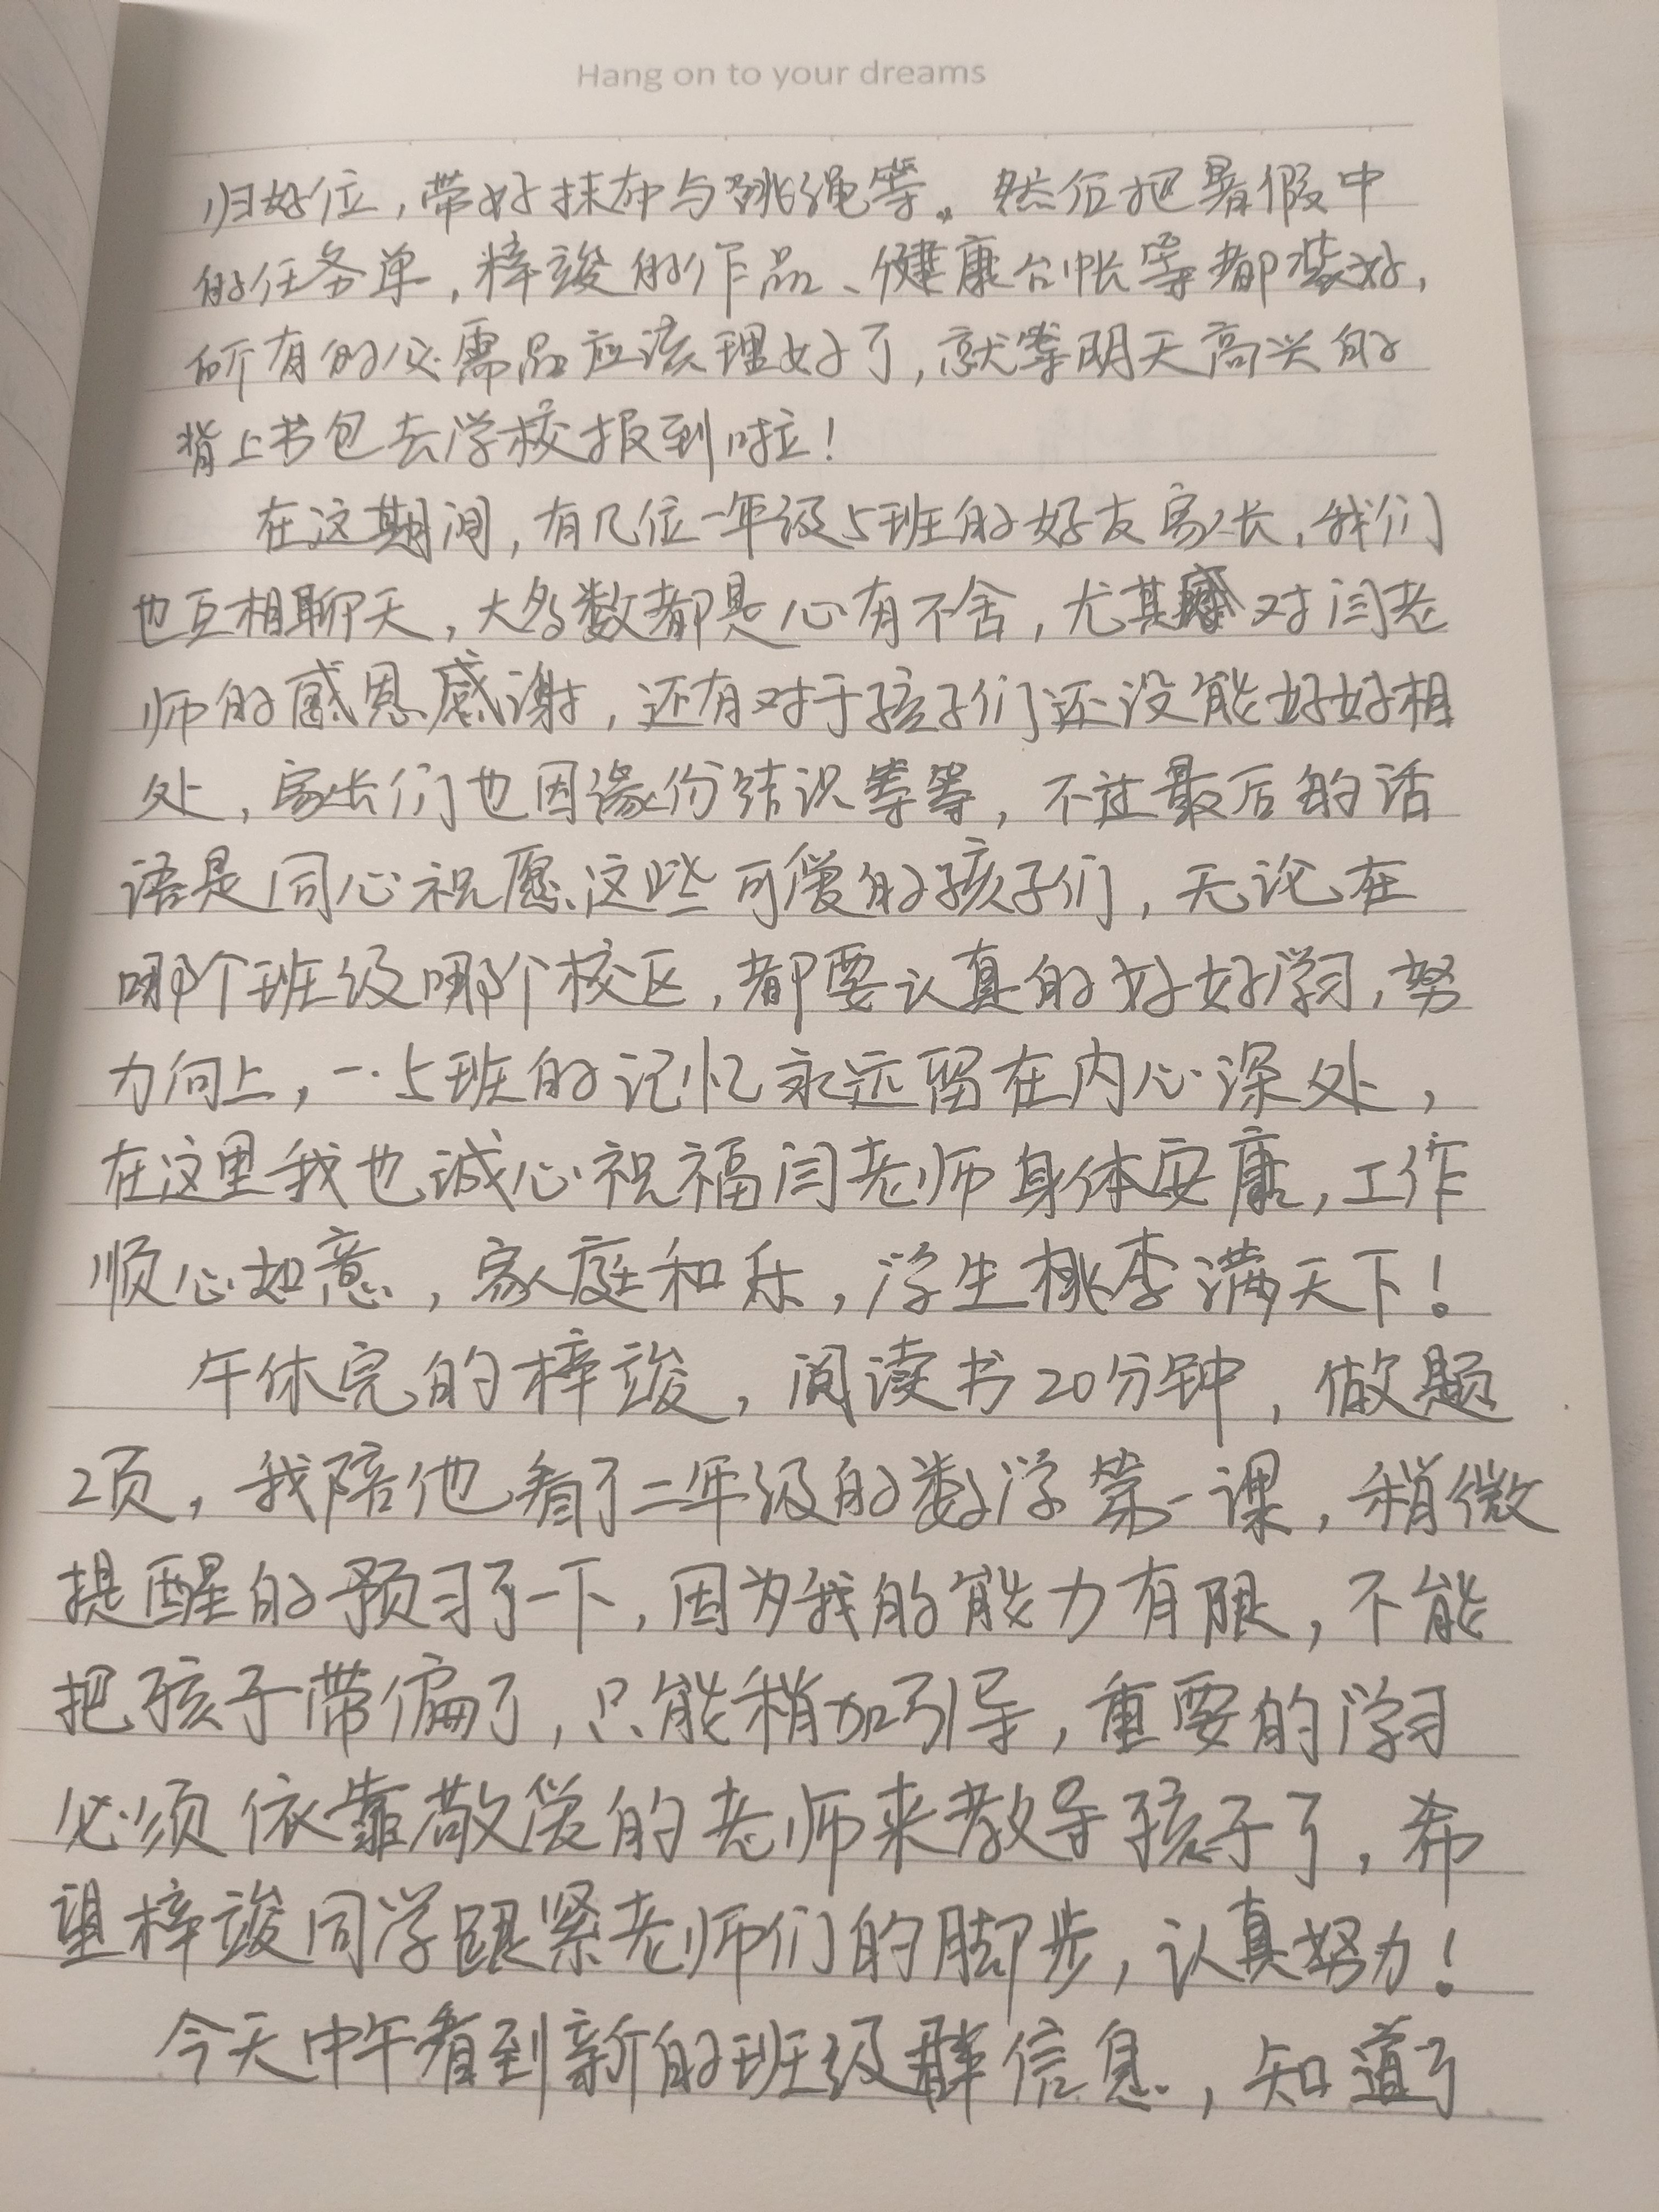 Hang on to your dreams
归好位，带好抹布与跳绳等。然后把暑假中
的任务单，梓竣的作品、健康台帐等都装好，
所有的必需品应该理好了，就等明天高兴的
背上书包去学校报到啦！
在这期间，有几位一年级5班的好友家长，我们
也互相聊天，大多数都是心有不舍，尤其对闫老
师的感恩感谢，还有对于孩子们还没能好好相
处，家长们也因缘份结识等等，不过最后的话
语是同心祝愿这些可爱的孩子们，无论在
哪个班级哪个校区，都要认真的好好学习，努
力向上，一.5班的记忆永远留在内心深处，
在这里我也诚心祝福闫老师身体安康，工作
顺心如意，家庭和乐，学生桃李满天下！
午休完的梓竣，阅读书20分钟，做题
2页，我陪他看了二年级的数学第一课，稍微
提醒的预习了一下，因为我的能力有限，不能
把孩子带偏了，只能稍加引导，重要的学习
必须依靠敬爱的老师来教导孩子了，希
望梓竣同学跟紧老师们的脚步，认真努力！
今天中午看到新的班级群信息，知道了